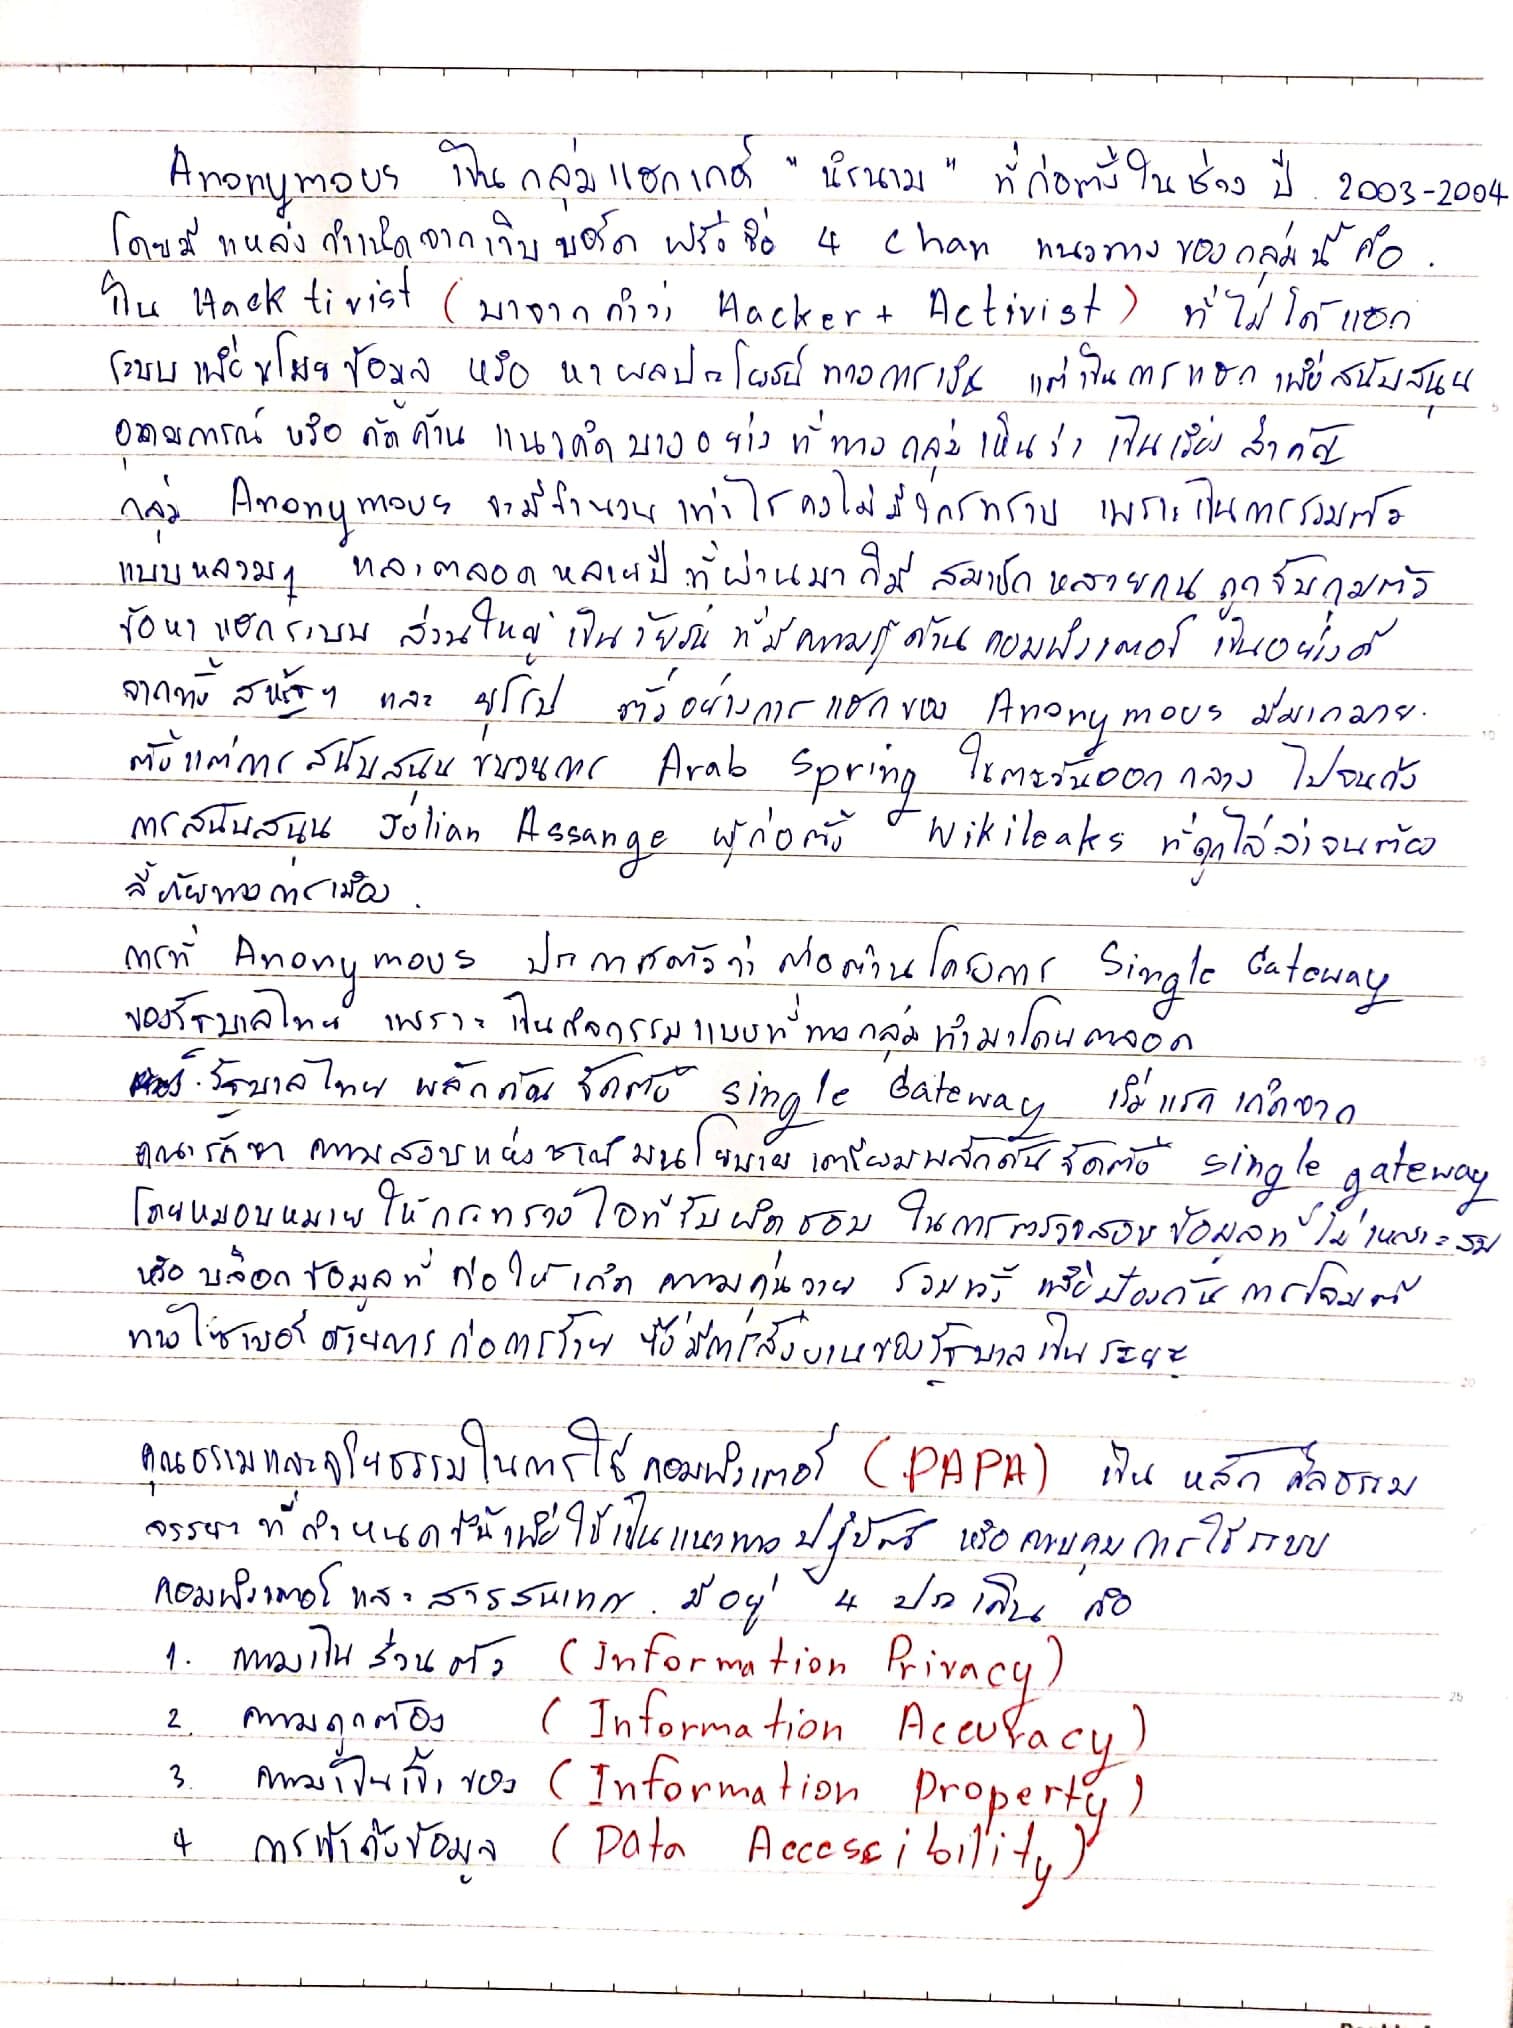 Anonymous เป็นกลุ่มแฮกเกอร์ "นิรนาม" ที่ก่อตั้งในช่วง ปี 2003-2004
โดยมี แหล่งกำเนิดจากเว็บบอร์ด ฟรีชื่อ 4 chan แนวทางของกลุ่มนี้ คือ
เป็น Hack tivist (มาจากคำว่า Hacker + Activist) ที่ไม่ได้แฮก
ระบบเพื่อขโมยข้อมูล หรือ หาผลประโยชน์ทางการเงิน แต่เป็นการแฮกเพื่อสนับสนุน
อุดมการณ์ หรือ คัดค้าน แนวคิดบางอย่าง ที่ทางกลุ่มเห็นว่า เป็นเรื่อง สำคัญ
กลุ่ม Anonymous จะมีจำนวนเท่าไรคงไม่มีใครทราบ เพราะเป็นการรวมตัว
แบบหลวมๆ และตลอดหลายปีที่ผ่านมา ก็มี สมาชิกหลายคนถูกจับกุมตัว
ข้อหาแฮกระบบ ส่วนใหญ่เป็นวัยรุ่น ที่มีความรู้ด้านคอมพิวเตอร์ เป็นอย่างดี
จากทั้งสหรัฐฯ และ ยุโรป ตัวอย่างการแฮกของ Anonymous มีมากมาย.
ตั้งแต่การสนับสนุนขบวนการ Arab Spring ในตะวันออกกลาง ไปจนถึง
การสนับสนุน Julian Assange ผู้ก่อตั้ง Wikileaks ที่ถูกไล่ล่าจนต้อง
ลี้ภัยทางการเมือง.
การที่ Anonymous ประกาศตัวว่าต่อต้านโครงการ Single Gateway
ของรัฐบาลไทย เพราะเป็นกิจกรรมแบบที่ทางกลุ่มทำมาโดยตลอด
รัฐบาลไทย ผลักดัน จัดตั้ง single Gateway เริ่มแรกเกิดจาก
คณะรักษาความสงบแห่งชาติมีนโยบายเตรียมผลักดันจัดตั้ง single gateway
โดยหมอบหมายให้กระทรวงไอทีรับผิดชอบ ในการตรวจสอบข้อมูลที่ไม่เหมาะสม
หรือ บล็อกข้อมูลที่ ก่อให้เกิด ความวุ่นวาย รวมทั้ง เพื่อป้องกันการโจมตี
ทางไซเบอร์ด้วยการก่อการร้าย ซึ่งมีการสั่งงานของรัฐบาลเป็นระยะ
คุณธรรมและจริยธรรมในการใช้คอมพิวเตอร์ (PAPA) เป็น หลัก ศีลธรรม
จรรยา ที่กำหนดขึ้นเพื่อใช้เป็นแนวทางปฏิบัติ หรือควบคุมการใช้ระบบ
คอมพิวเตอร์และสารสนเทศ. มีอยู่ 4 ประเด็น คือ
1. ความเป็นส่วนตัว (Information Privacy)
2. ความถูกต้อง (Information Accuracy)
3. ความเป็นเจ้าของ (Information Property)
4 การเข้าถึงข้อมูล (Data Accessibility)